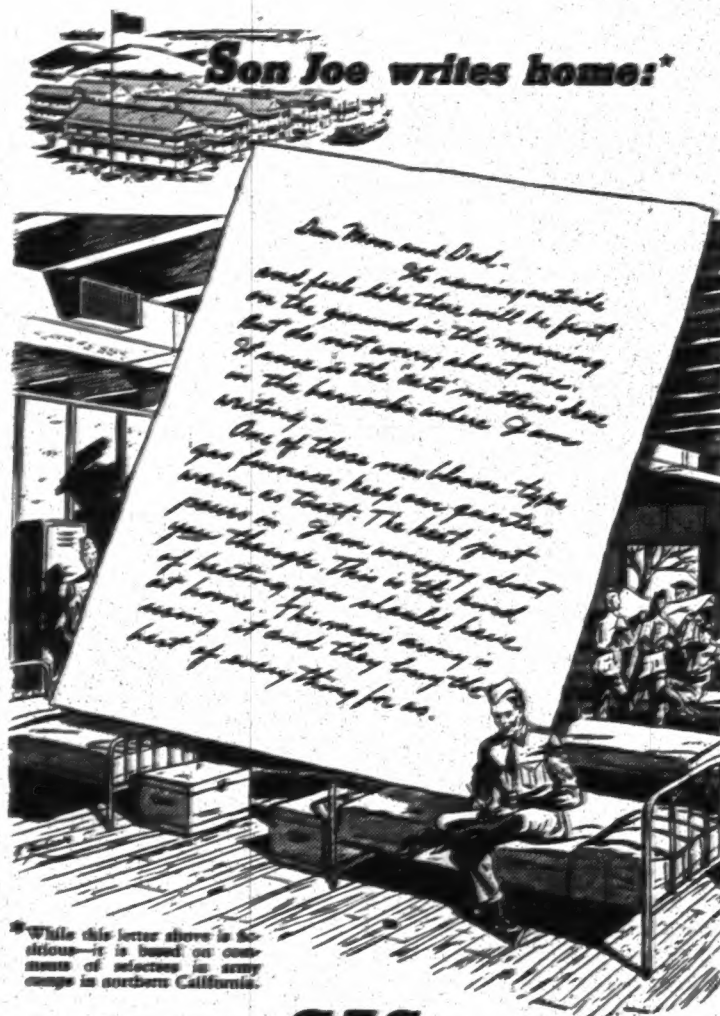 Son Joe writes home:*
Dear Mom and Dad-
It's raining outside
and feels like there will be frost
on the ground in the morning
But do not worry about me.
It sure is the cats' mattress here
in the barracks where I am
writing-
One of those new blower-type
gas furnaces keep our quarters
warm as toast. The heat just
pours in. I am worrying about
you though. This is the kind
of heating you should have
at home. This man's army is
using it and they buy the
best of everything for us.
*While this letter above is fic-
titious—it is based on com-
ments of selectees in army
camps in northern California.